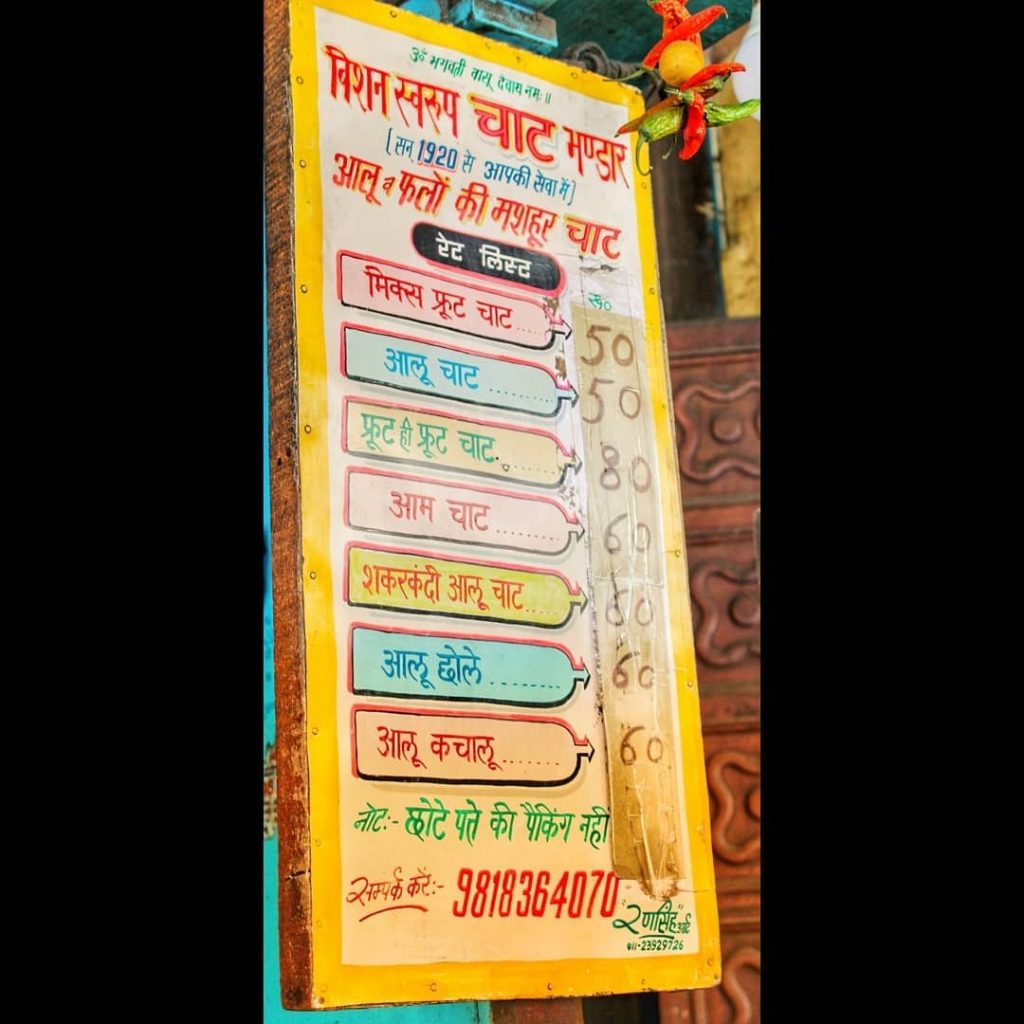 ॐ भगवती वासू देवाय नमः॥
बिशन स्वरुप चाट भण्डार
(सन् 1920 से आपकी सेवा में)
आलू व फलों की मशहूर चाट
रेट लिस्ट
रु०
मिक्स फ्रूट चाट...... 50
आलू चाट .......... 50
फ्रूट ही फ्रूट चाट......... 80
आम चाट .......... 60
शकरकंदी आलू चाट...... 60
आलू छोले .......... 60
आलू कचालू ........ 60
नोट:- छोटे पत्ते की पैकिंग नहीं
सम्पर्क करें:- 9818364070
"रणसिंह" आर्ट
011-23929726